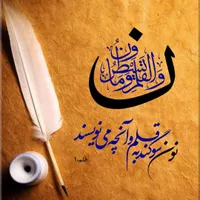 ن والقلم وما يسطرون
نون سوگند به قلم و آنچه می نویسند